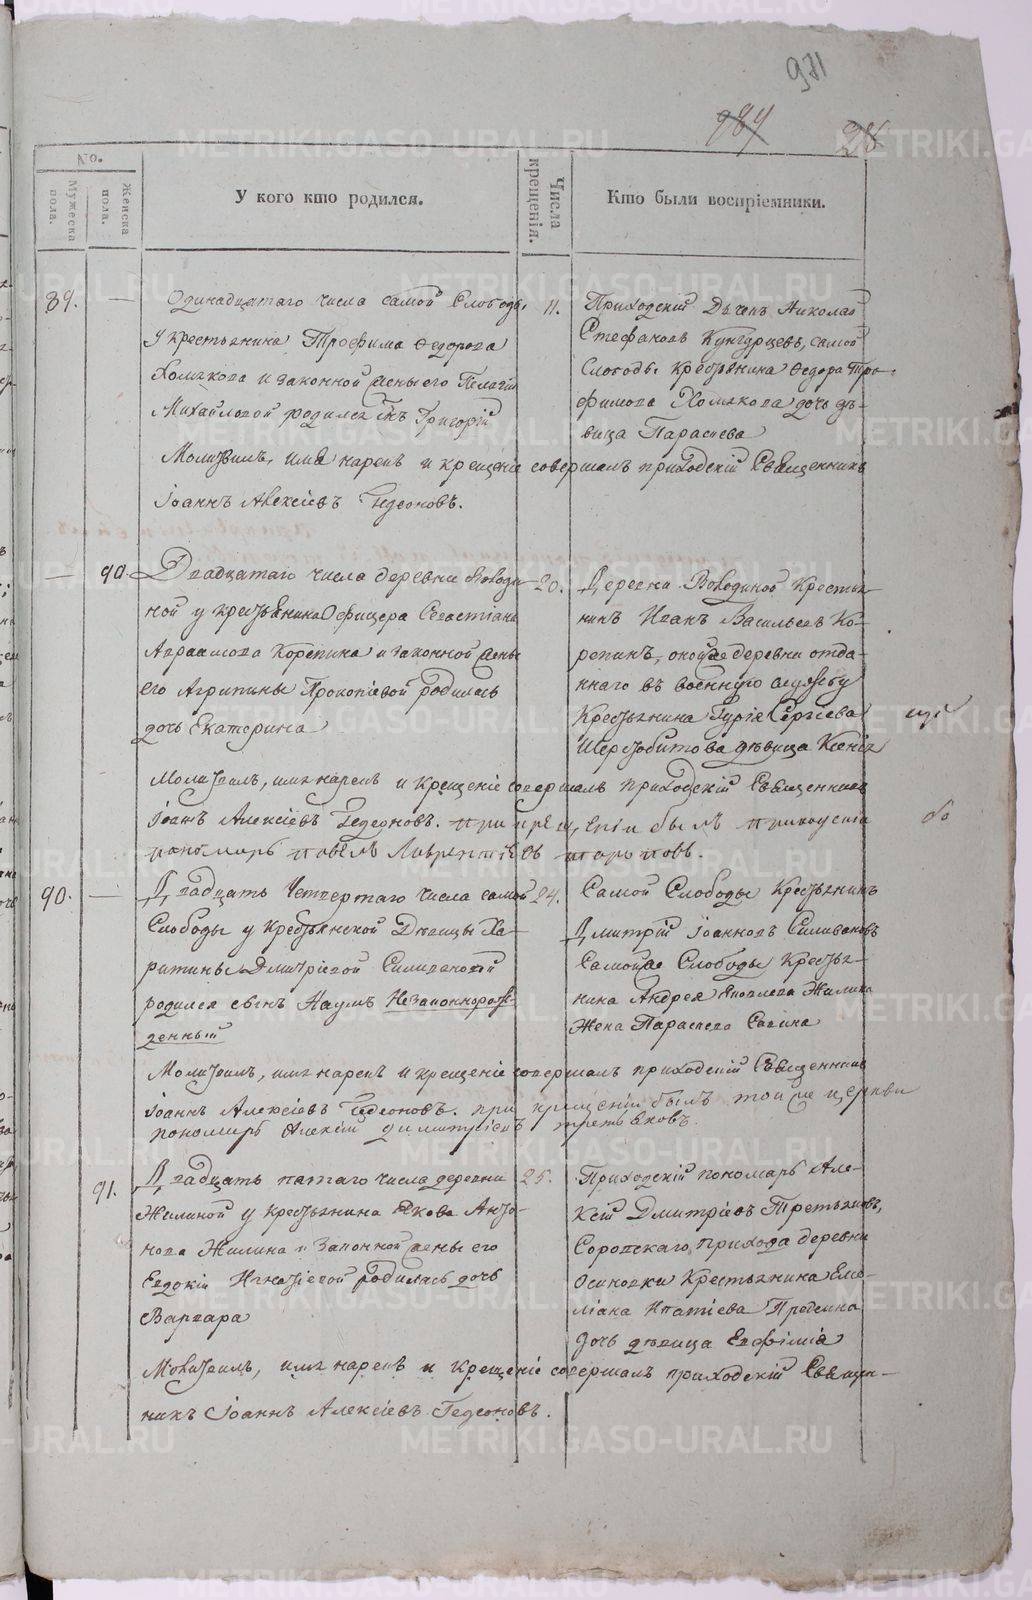 971
984
28
No.
Мужеска пола.
Женска пола.
У кого кто родился.
Числа крещенія.
Кто были воспріемники.
89.
—
Одинадцатаго числа самой Слободы
у крестьянина Трофима Федорова
Холмкова и законной жены его Пелагіи
Михайловой родился сынъ Григорій
11.
Приходскій Дьячекъ Николай
Стефановъ Кунгурцевъ, самой
Слободы крестьянина Федора Тро-
фимова Холмкова дочь дѣ-
вица Параскева
Молитвилъ, имя нарекъ и крещеніе совершалъ приходскій Священникъ
Іоаннъ Алексіевъ Гедеоновъ.
—
90.
Двадцатаго числа деревни Воводи-
ной у крестьянина Офицера Севастіана
Авраамова Корепина и законной жены
его Агрипины Прокопіевой родилась
дочь Екатерина
20.
Деревни Воводиной Крестья-
нинъ Иванъ Васильевъ Ко-
репинъ, оной же деревни отда-
ннаго въ военную службу
Крестьянина Гурія Сергіева
Шерстобитова дѣвица Ксенія
Молитвилъ, имя нарекъ и крещеніе совершалъ приходскій Священникъ
Іоаннъ Алексіевъ Гедеоновъ. при крещеніи былъ приходскій
пономарь Павелъ Лаврентіевъ
90.
—
Двадцать Четвертаго числа самой
Слободы у крестьянской Дѣвицы Ха-
ритины Дмитріевой Силивановой
родился сынъ Наумъ Незаконнорож-
денный
24.
Самой Слободы Крестьянинъ
Дмитрій Іоанновъ Силивановъ
Самой же Слободы Крестья-
нина Андрея Яковлева Жилина
Жена Параскева Савина
Молитвилъ, имя нарекъ и крещеніе совершалъ приходскій Священникъ
Іоаннъ Алексіевъ Гедеоновъ. при крещеніи былъ той же церкви
пономарь Алексій Димитріевъ Третьяковъ.
91.
Двадцать пятаго числа деревни
Жилиной у крестьянина Якова Анто-
нова Жилина и Законной жены его
Евдокіи Игнатіевой родилась дочь
Варвара
25.
Приходскій пономарь Але-
ксій Дмитріевъ Третьяковъ,
прихода деревни
Осиновки Крестьянина Еме-
ліана Ипатіева
дочь дѣвица Евфимія
Молитвилъ, имя нарекъ и Крещеніе совершалъ приходскій Священ-
никъ Іоаннъ Алексіевъ Гедеоновъ.
METRIKI.GASO-URAL.RU